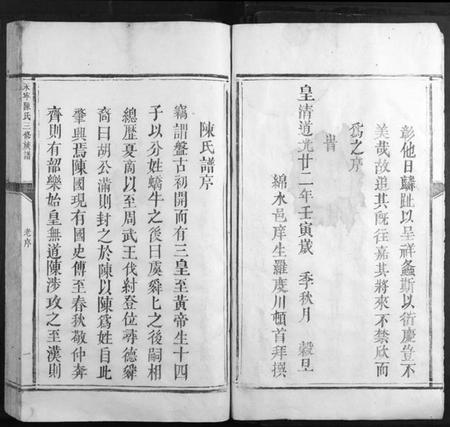 彰他日麟趾以呈祥螽斯以衍慶豈不
美哉故追其既往嘉其將來不禁欣而
為之序
旹
皇清道光廿二年壬寅歲 季秋月 穀旦
綿水邑庠生羅度川頓首拜撰
永寧陳氏三修族譜
老序
一
陳氏譜序
竊謂盤古初開而有三皇至黃帝生十四
子以分姓蟜牛之後曰虞舜匕之後嗣相
總歷夏商以至周武王伐紂登位尋德舜
裔曰胡公滿則封之於陳以陳為姓自此
肇興焉陳國現有國史傳至春秋敬仲奔
齊則有韶樂始皇無道陳涉攻之至漢則